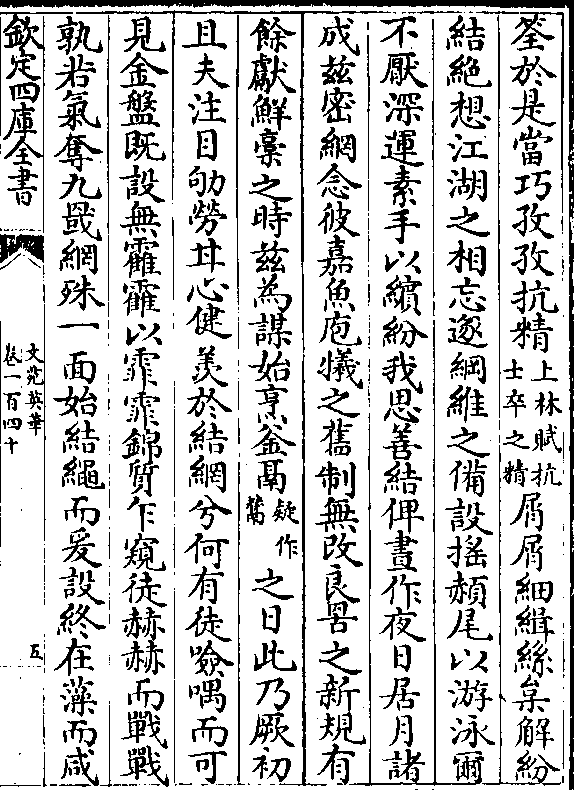 筌於是當巧孜孜抗精上林賦抗士卒之精屑屑細緝絲枲解紛
結絶想江湖之相忘遂綱維之備設揺頳尾以游泳爾
不厭深運素手以繽紛我思善結俾晝作夜日居月諸
成兹密網念彼嘉魚庖犧之舊制無改良罟之新規有
餘獻鮮槀之時兹為謀始烹釡鬲疑作鬵之日此乃厥初
且夫注目劬勞甘心健羡於結網兮何有徒噞喁而可
見金盤既設無靃靃以霏霏錦質乍窺徒赫赫而戰戰
孰若氣奪九罭網殊一面始結繩而爰設終在藻而咸
欽定四庫全書
文苑英華
卷一百四十
五